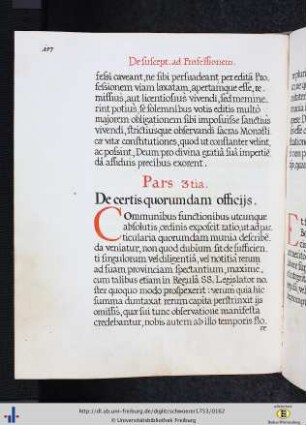 De suscept. ad Professionem.
fessi caveant, ne sibi persuadeant per editā Pro
fessionem viam laxatam, apertamque esse, re-
missius, aut licentiosius vivendi, sed memine-
rint potius, se solemnibus votis editis multò
majorem obligationem sibi imposuisse sanctius
vivendi, strictiusque observandi sacras Monasti-
cæ vitæ constitutiones, quod ut constanter velint,
ac possint, Deum pro divina gratiâ suâ impertiē-
dâ assiduis precibus exorent.
Pars 3tia.
De certis quorumdam officijs.
Communibus functionibus utcunque
absolutis, ordinis exposcit ratio, ut ad par-
ticularia quorumdam munia describē-
da veniatur, non quod dubium sit de sufficien-
ti singulorum vel diligentiâ, vel notitiâ rerum
ad suam provinciam spectantium, maxime,
cum talibus etiam in Regulâ SS. Legislator no-
ster quoquo modo prospexerit: verum quia hic
summa duntaxat rerum capita perstrinxit ijs
omissis, quæ sui tunc observatione manifesta
credebantur, nobis autem ab illo temporis flo-
re
http://dl.ub.uni-freiburg.de/diglit/scheuerer1753/0162
© Universitätsbibliothek Freiburg